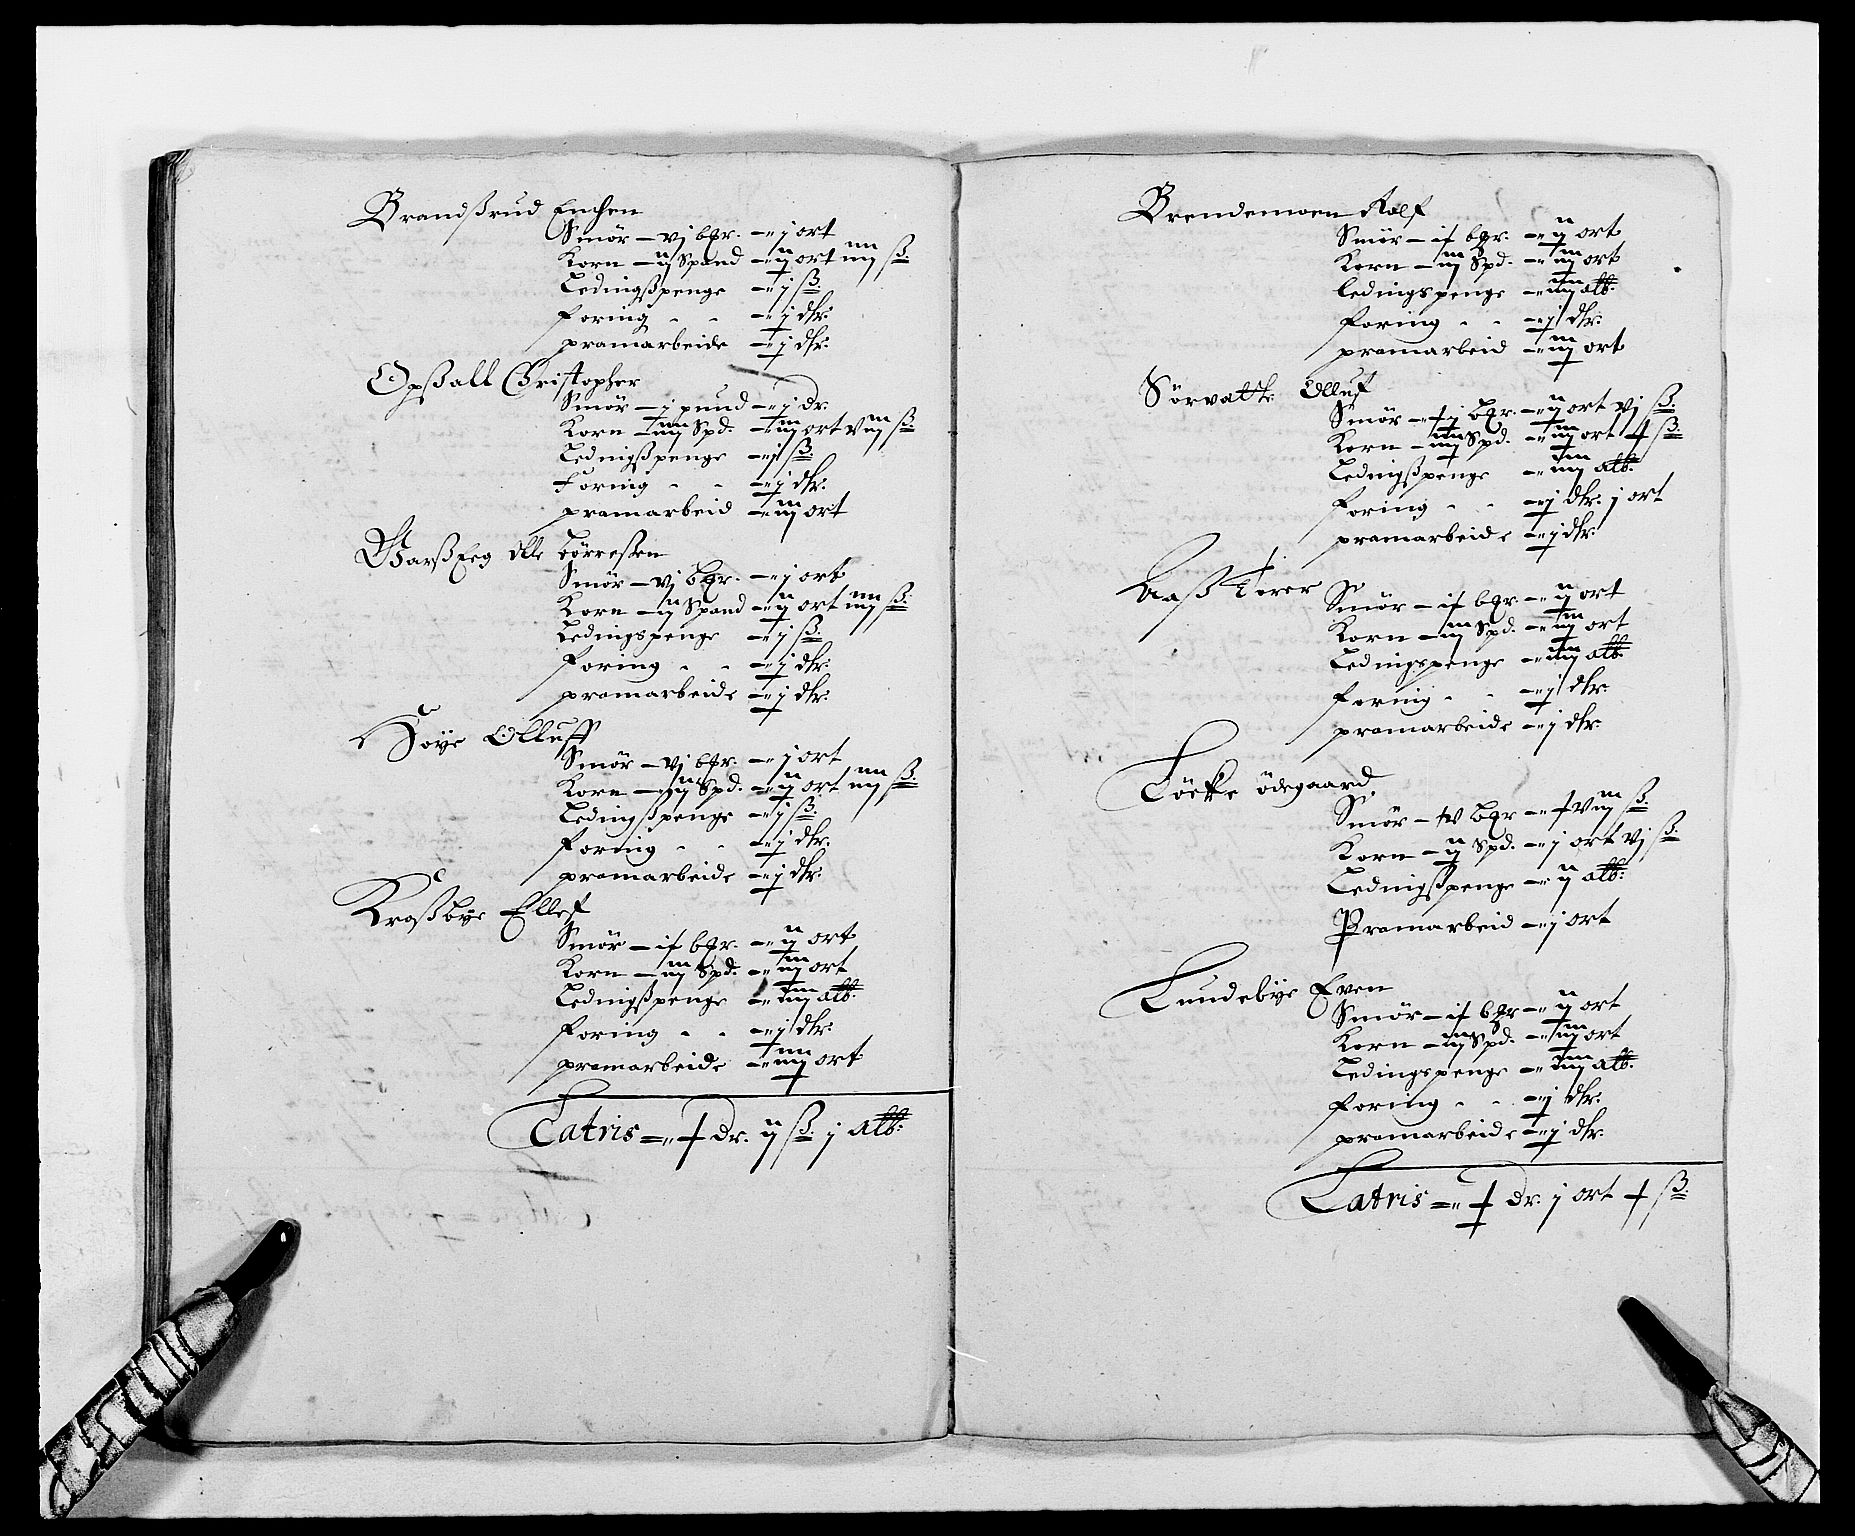 Brandßrud Enchen
Smör – vj bgr. – j ort
Korn – ij Spand – ij ort iiij ß.
Ledingßpenge – j ß.
foring - - – j dlr.
pramarbeide – j dlr.
Opßall Christopher
Smör – j pund – j dr.
Korn – iiij Spd. – iij ort viij ß.
Ledingßpenge – j ß.
foring - - – j dlr.
pramarbeid – iij ort
Olle Börreßen
Smör – vj bgr. – j ort
Korn – ij Spand – ij ort iiij ß.
Ledingspenge – j ß.
foring - - – j dlr.
pramarbeide – j dlr.
Höye Olluff
Smör – vj bgr. – j ort
Korn – ij Spd. – ij ort iiij ß.
Ledingßpenge – j ß.
foring - - – j dlr.
pramarbeide – j dlr.
Kraßbye Ellef
Smör – ix bgr. – ij ort
Korn – iij Spd. – iij ort
Ledingßpenge – iiij alb.
foring - - – j dlr.
pramarbeide – iiij ort
Latris = x dr. ij ß. j alb.
Brendemoen Rolf
Smör – ix bgr. – ij ort
Korn – iij Spd. – iij ort
ledingspenge – iiij alb.
foring - - – j dlr.
pramarbeid – iij ort
Sörvatte Olluf
Smör – xj bgr. – ij ort vj ß.
Korn – iiij Spd. – iij ort x ß.
Ledingßpenge – iiij alb.
foring - - – j dlr. j ort
pramarbeide – j dlr.
Aaß Torer
Smör – ix bgr. – ij ort
Korn – iij Spd. – iij ort
Ledingspenge – iiij alb.
foring - - – j dlr.
pramarbeide – j dlr.
ödegaard
Smör – iv bgr – xviij ß.
Korn – ij Spd. – j ort vj ß.
Ledingßpenge – ij alb.
Pramarbeid – j ort
Lundebye Even
Smör – ix bgr – ij ort
Korn – iij Spd. – iij ort
Ledingspenge – iiij alb.
foring - - – j dlr.
pramarbeide – j dlr.
Latris = x dr. j ort x ß.